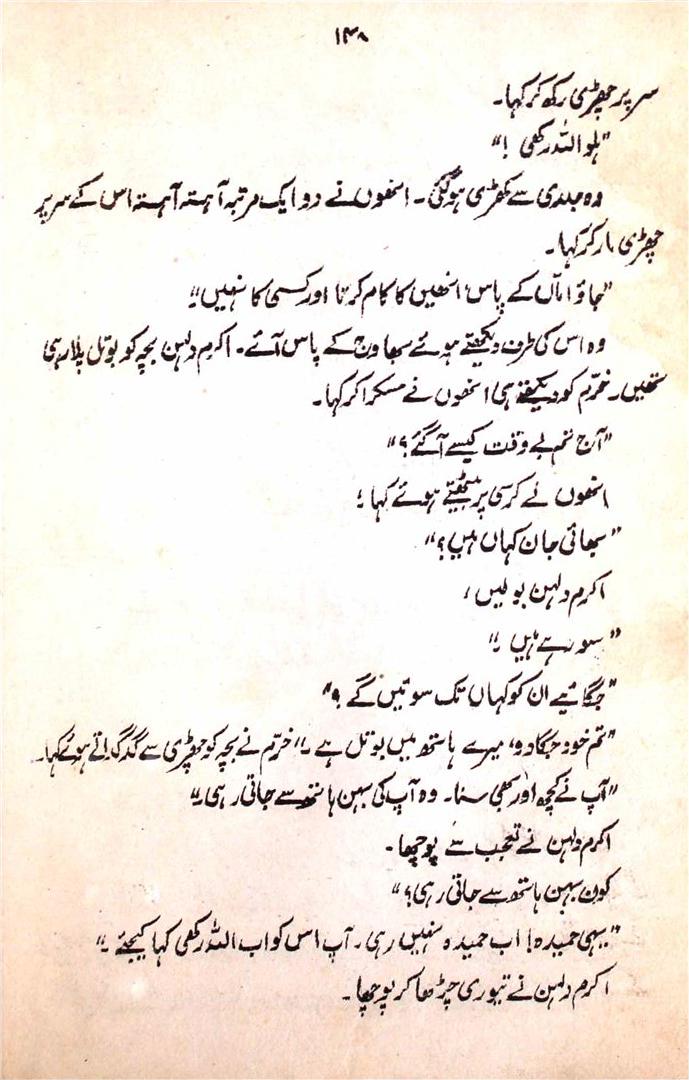 ۱۴۸
سر پر چھڑی رکھ کر کہا۔
"ہلو اللہ رکھی !"
وہ جلدی سے کھڑی ہو گئی۔ انھوں نے دو ایک مرتبہ آہستہ آہستہ اس کے سر پر
چھڑی مار کر کہا۔
"جاؤ اماں کے پاس انھیں کا کام کرنا اور کسی کا نہیں"
وہ اس کی طرف دیکھتے ہوئے بھاوج کے پاس آئے۔ اکرم دلہن بچہ کو بوتل پلا رہی
تھیں۔ خرّم کو دیکھتے ہی انھوں نے مسکرا کر کہا۔
"آج تم بے وقت کیسے آ گئے؟"
انھوں نے کرسی پر بیٹھتے ہوئے کہا ؛
"بھائی جان کہاں ہیں؟"
اکرم دلہن بولیں ،
"سو رہے ہیں ۔"
"جگائیے ان کو کہاں تک سوئیں گے ؟"
"تم خود جگا دو، میرے ہاتھ میں بوتل ہے ۔" خرّم نے بچہ کو چھڑی سے گدگداتے ہوئے کہا۔
"آپ نے کچھ اور بھی سنا۔ وہ آپ کی بہن ہاتھ سے جاتی رہی۔"
اکرم دلہن نے تعجب سے پوچھا ۔
کون بہن ہاتھ سے جاتی رہی؟"
"یہی حمیدہ! اب حمیدہ نہیں رہی ۔ آپ اس کو اب اللہ رکھی کہا کیجئے ۔"
اکرم دلہن نے تیوری چڑھا کر پوچھا ۔